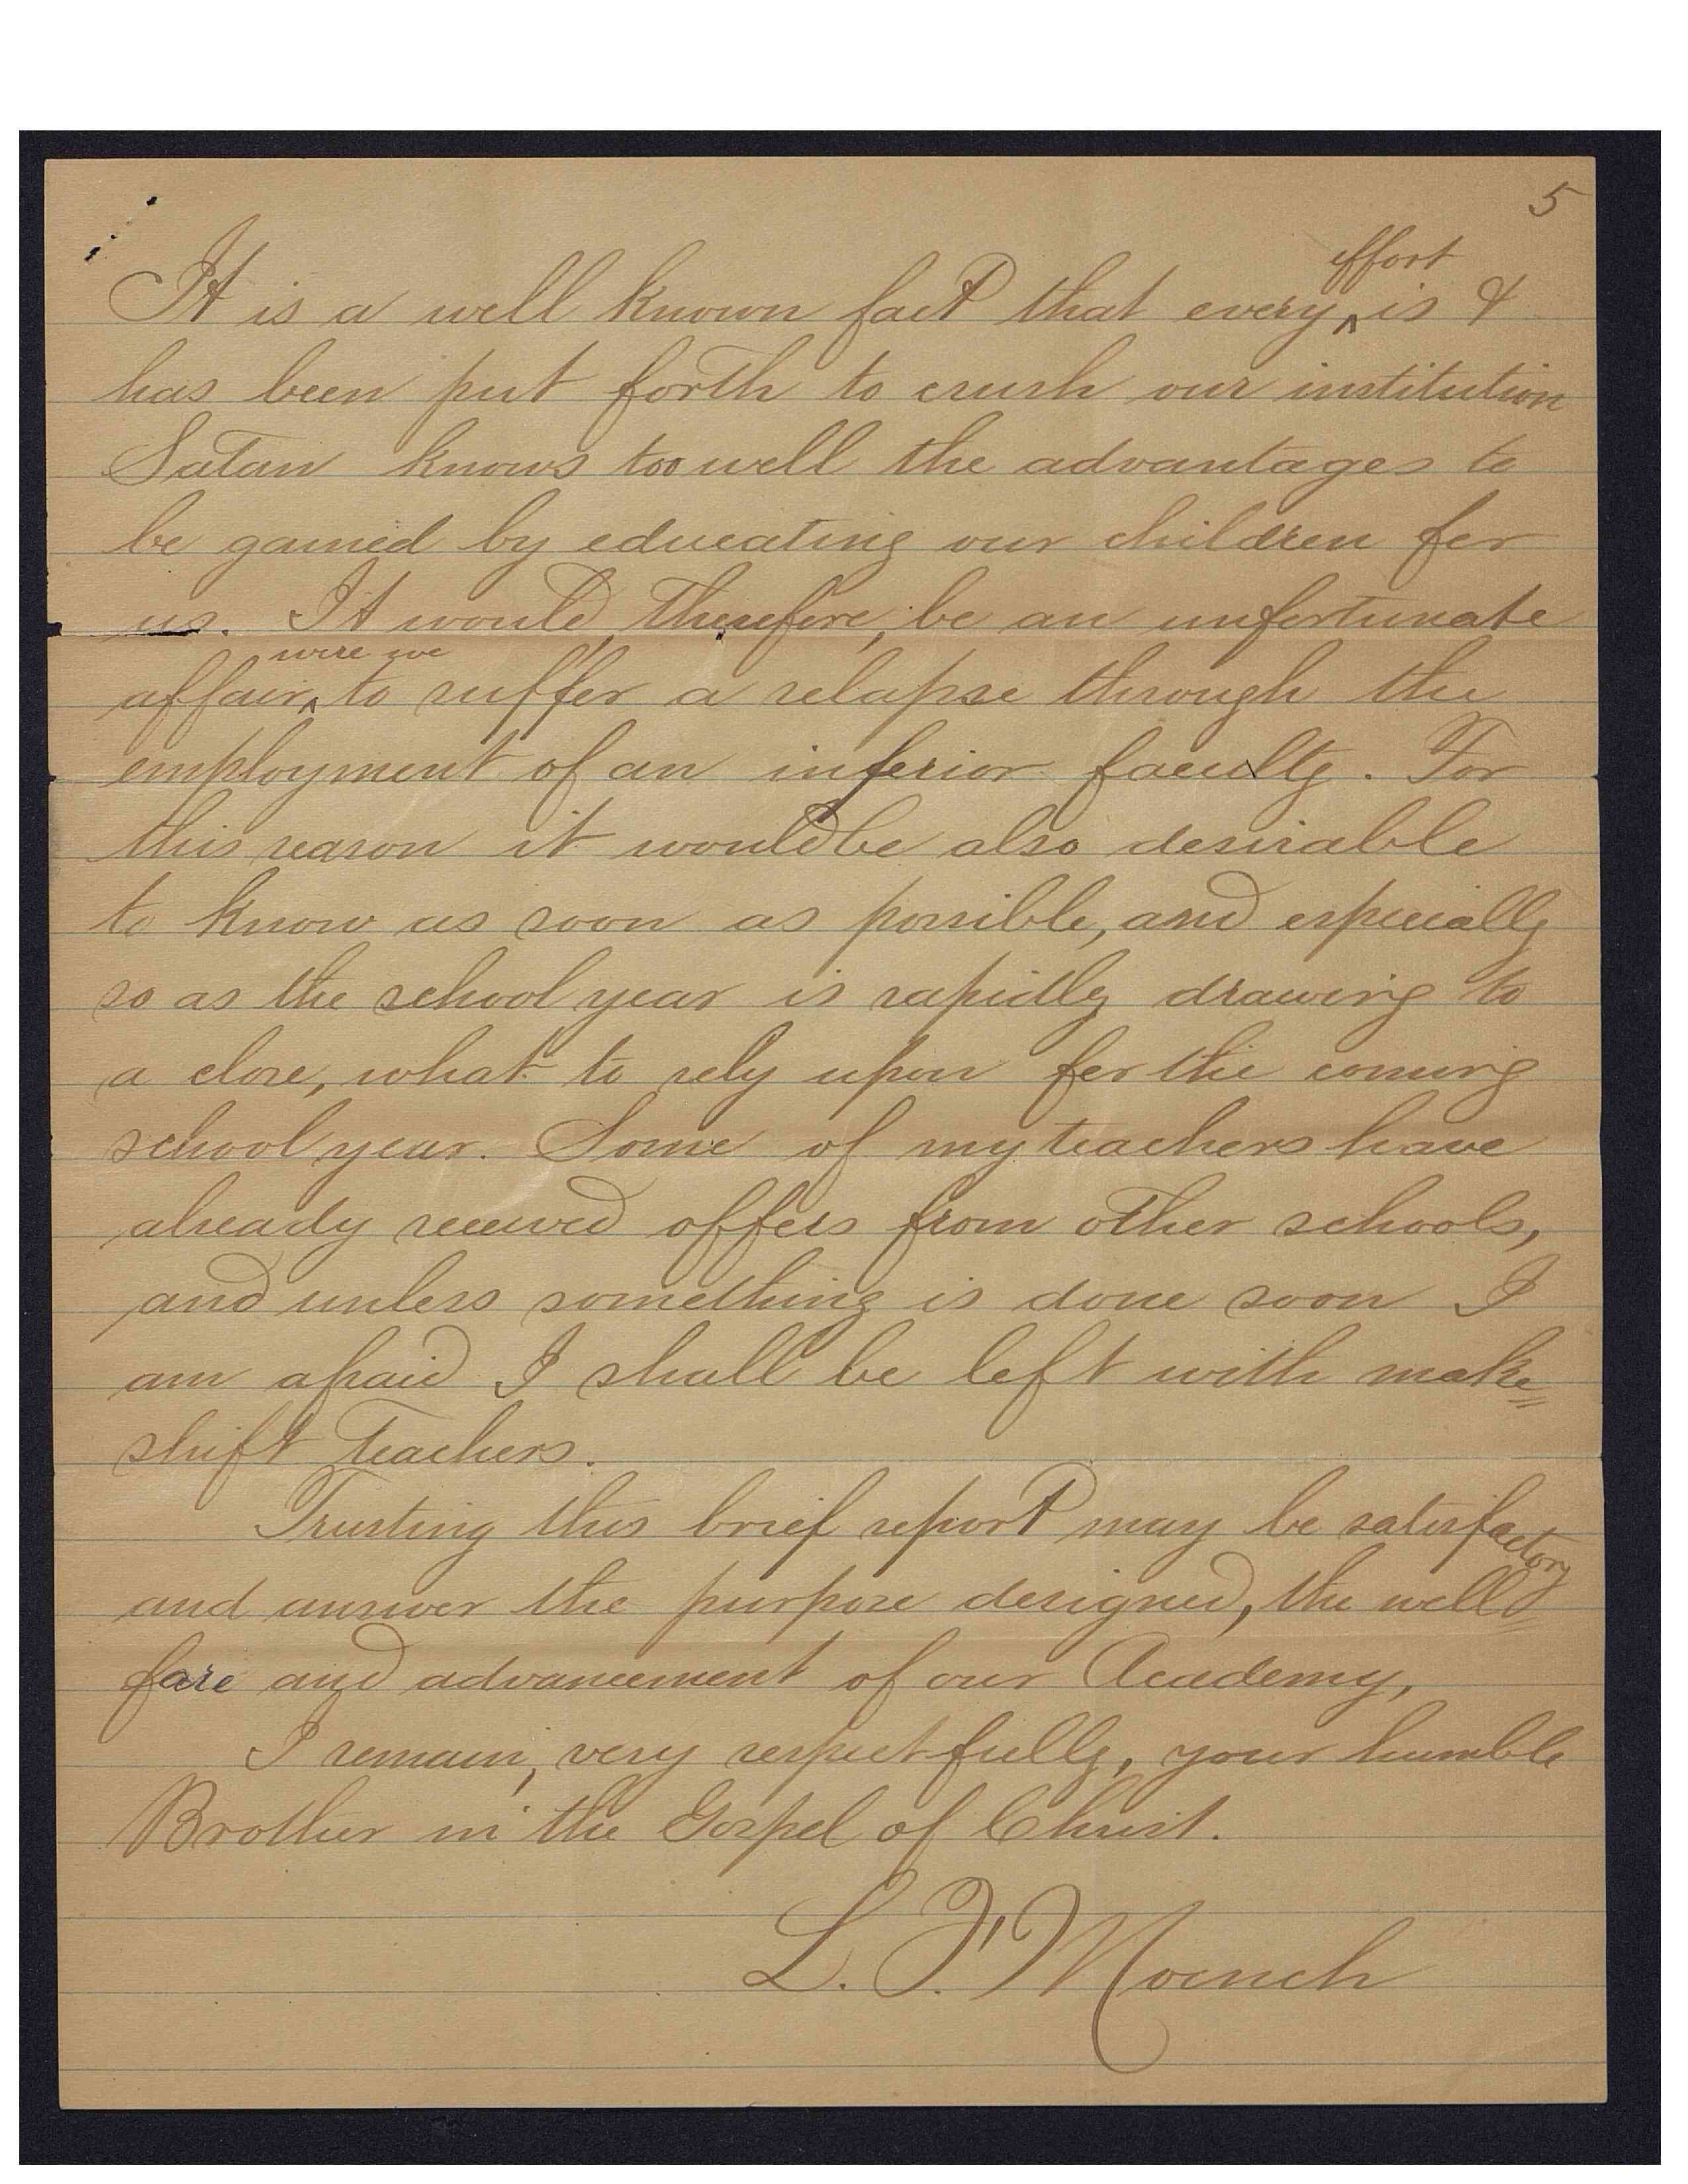 5
It is a well known fact that every ^effort is &
has been put forth to crush our institution
Satan knows too well the advantages to
be gained by educating our children for
us. It would, therefore, be an unfortunate
affair ^were we to suffer a relapse through the
employment of an inferior faculty. For
this reason it would be also desirable
to know as soon as possible, and especially
so as the school year is rapidly drawing to
a close, what to rely upon for the coming
school year. Some of my teachers have
already received offers from other schools,
and unless something is done soon I
am afraid I shall be left with make=
shift teachers.
Trusting this brief report may be satisfactory
and answer the purpose designed, the well=
fare and advancement of our Academy,
I remain, very respectfully, your humble
Brother in the Gospel of Christ.
L. F. Moench